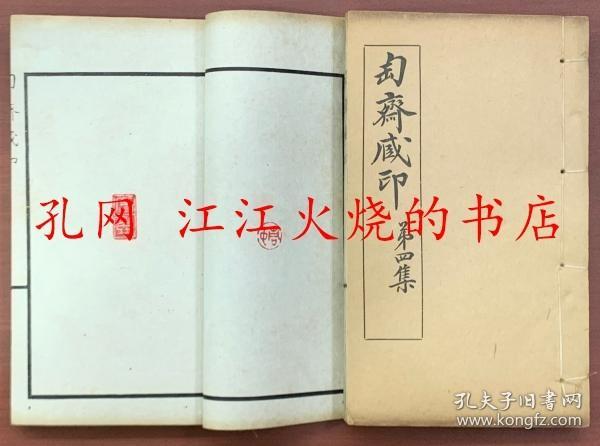 匋齋藏印
第四集
匋齋藏印
孔网 江江火烧的书店
孔夫子旧书网
www.kongfz.com